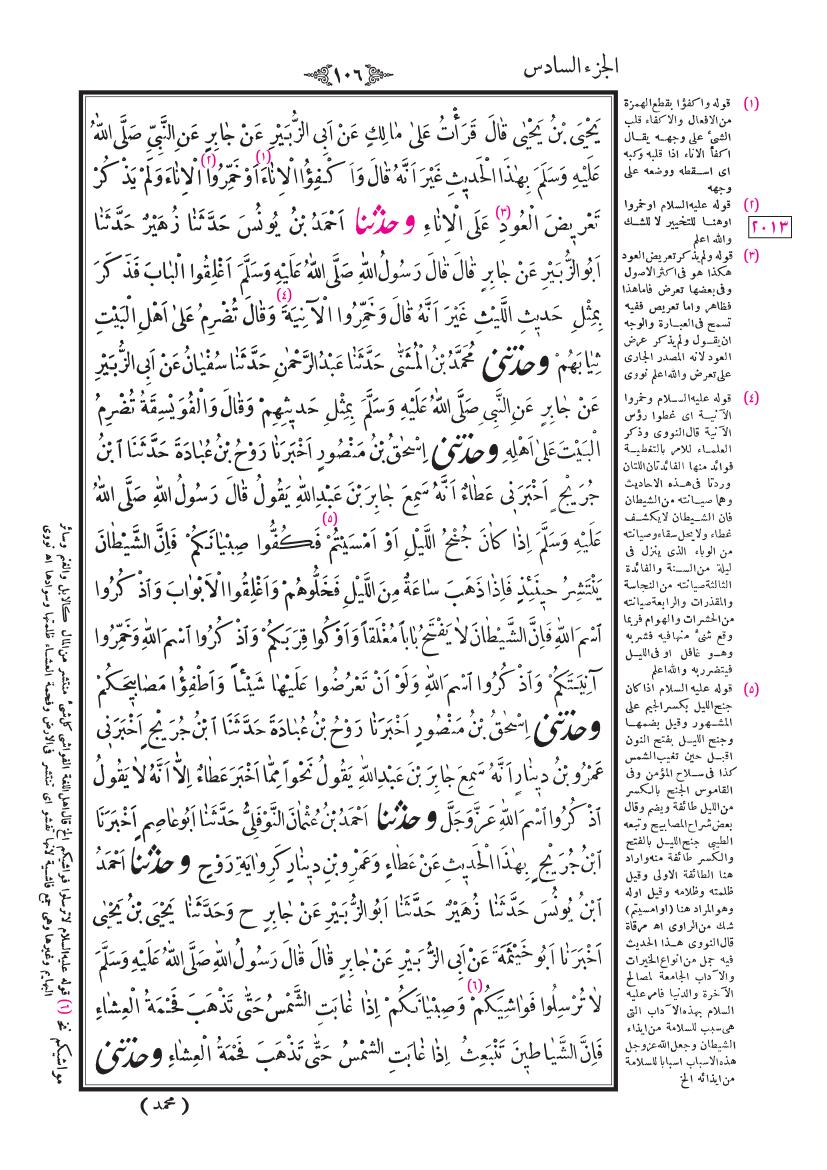 الجزء السادس
١٠٦
يَحْيَى بْنُ يَحْيٰى قَالَ قَرَأْتُ عَلٰى مَالِكٍ عَنْ اَبِى الزُّبَيْرِ عَنْ جَابِرٍ عَنِ النَّبِىِّ صَلَّى اللهُ
عَلَيْهِ وَسَلَّمَ بِهٰذَا الْحَدِيثِ غَيْرَ اَنَّهُ قَالَ وَاَكْفِؤُا الْاِنَاءَ (١) اَوْخَمِّرُوا (٢) الْاِنَاءَ وَلَمْ يَذْكُرْ
تَعْرِيضَ الْعُودِ (٣) عَلَى الْاِنَاءِ وحدثنا اَحْمَدُ بْنُ يُونُسَ حَدَّثَنَا زُهَيْرٌ حَدَّثَنَا
اَبُوالزُّبَيْرِ عَنْ جَابِرٍ قَالَ قَالَ رَسُولُ اللهِ صَلَّى اللهُ عَلَيْهِ وَسَلَّمَ اَغْلِقُوا الْبَابَ فَذَكَرَ
بِمِثْلِ حَدِيثِ اللَّيْثِ غَيْرَ اَنَّهُ قَالَ وَخَمِّرُوا الْآنِيَةَ (٤) وَقَالَ تُضْرِمُ عَلٰى اَهْلِ الْبَيْتِ
ثِيَابَهُمْ وحدثنى مُحَمَّدُ بْنُ الْمُثَنّٰى حَدَّثَنَا عَبْدُ الرَّحْمٰنِ حَدَّثَنَا سُفْيَانُ عَنْ اَبِى الزُّبَيْرِ
عَنْ جَابِرٍ عَنِ النَّبِىِّ صَلَّى اللهُ عَلَيْهِ وَسَلَّمَ بِمِثْلِ حَدِيثِهِمْ وَقَالَ وَالْفُوَيْسِقَةُ تُضْرِمُ
الْبَيْتَ عَلٰى اَهْلِهِ وحدثنى اِسْحٰقُ بْنُ مَنْصُورٍ اَخْبَرَنَا رَوْحُ بْنُ عُبَادَةَ حَدَّثَنَا ابْنُ
جُرَيْجٍ اَخْبَرَنِى عَطَاءٌ اَنَّهُ سَمِعَ جَابِرَ بْنَ عَبْدِ اللهِ يَقُولُ قَالَ رَسُولُ اللهِ صَلَّى اللهُ
عَلَيْهِ وَسَلَّمَ اِذَا كَانَ جُنْحُ اللَّيْلِ اَوْ اَمْسَيْتُمْ (٥) فَكُفُّوا صِبْيَانَكُمْ فَاِنَّ الشَّيْطَانَ
يَنْتَشِرُ حِينَئِذٍ فَاِذَا ذَهَبَ سَاعَةٌ مِنَ اللَّيْلِ فَخَلُّوهُمْ وَاَغْلِقُوا الْاَبْوَابَ وَاذْكُرُوا
اسْمَ اللهِ فَاِنَّ الشَّيْطَانَ لَا يَفْتَحُ بَاباً مُغْلَقاً وَاَوْكُوا قِرَبَكُمْ وَاذْكُرُوا اسْمَ اللهِ وَخَمِّرُوا
آنِيَتَكُمْ وَاذْكُرُوا اسْمَ اللهِ وَلَوْ اَنْ تَعْرُضُوا عَلَيْهَا شَيْئاً وَاَطْفِؤُا مَصَابِيحَكُمْ
وحدثنى اِسْحٰقُ بْنُ مَنْصُورٍ اَخْبَرَنَا رَوْحُ بْنُ عُبَادَةَ حَدَّثَنَا ابْنُ جُرَيْجٍ اَخْبَرَنِى
عَمْرُو بْنُ دِينَارٍ اَنَّهُ سَمِعَ جَابِرَ بْنَ عَبْدِ اللهِ يَقُولُ نَحْواً مِمَّا اَخْبَرَ عَطَاءٌ اِلَّا اَنَّهُ لَا يَقُولُ
اذْكُرُوا اسْمَ اللهِ عَزَّوَجَلَّ وحدثنا اَحْمَدُ بْنُ عُثْمَانَ النَّوْفَلِىُّ حَدَّثَنَا اَبُوعَاصِمٍ اَخْبَرَنَا
ابْنُ جُرَيْجٍ بِهٰذَا الْحَدِيثِ عَنْ عَطَاءٍ وَعَمْرِو بْنِ دِينَارٍ كَرِوَايَةِ رَوْحٍ وحدثنا اَحْمَدُ
ابْنُ يُونُسَ حَدَّثَنَا زُهَيْرٌ حَدَّثَنَا اَبُوالزُّبَيْرِ عَنْ جَابِرٍ ح وَحَدَّثَنَا يَحْيَى بْنُ يَحْيٰى
اَخْبَرَنَا اَبُو خَيْثَمَةَ عَنْ اَبِى الزُّبَيْرِ عَنْ جَابِرٍ قَالَ قَالَ رَسُولُ اللهِ صَلَّى اللهُ عَلَيْهِ وَسَلَّمَ
لَا تُرْسِلُوا فَوَاشِيَكُمْ (٦) وَصِبْيَانَكُمْ اِذَا غَابَتِ الشَّمْسُ حَتَّى تَذْهَبَ فَحْمَةُ الْعِشَاءِ
فَاِنَّ الشَّيَاطِينَ تَنْبَعِثُ اِذَا غَابَتِ الشَّمْسُ حَتَّى تَذْهَبَ فَحْمَةُ الْعِشَاءِ وحدثنى
( محمد )
(١) قوله واكفؤا بقطع الهمزة
من الافعال والاكفاء قلب
الشئ على وجهه يقال
اكفأ الاناء اذا قلبه وكبه
اى اسقطه ووضعه على
وجهه
(٢) قوله عليه السلام اوخمروا
اوهنا للتخيير لا للشك
والله اعلم
٢٠١٣
(٣) قوله ولم يذكر تعريض العود
هكذا هو فى اكثر الاصول
وفى بعضها تعرض فاما هذا
فظاهر واما تعريض ففيه
تسمح فى العبارة والوجه
ان يقول ولم يذكر عرض
العود لانه المصدر الجارى
على تعرض والله اعلم نووى
(٤) قوله عليه السلام وخمروا
الآنية اى غطوا رؤس
الآنية قال النووى وذكر
العلماء للامر بالتغطية
فوائد منها الفائدتان اللتان
وردتا فى هذه الاحاديث
وهما صيانته من الشيطان
فان الشيطان لا يكشف
غطاء ولا يحل سقاء وصيانته
من الوباء الذى ينزل فى
ليلة من السنة والفائدة
الثالثة صيانته من النجاسة
والمقذرات والرابعة صيانته
من الحشرات والهوام فربما
وقع شئ منها فيه فشربه
وهو غافل او فى الليل
فيتضرر به والله اعلم
(٥) قوله عليه السلام اذا كان
جنح الليل بكسر الجيم على
المشهور وقيل بضمها
وجنح الليل بفتح النون
اقبل حين تغيب الشمس
كذا فى سلاح المؤمن وفى
القاموس الجنح بالكسر
من الليل طائفة ويضم وقال
بعض شراح المصابيح وتبعه
الطيبى جنح الليل بالفتح
والكسر طائفة منه واراد
هنا الطائفة الاولى وقيل
ظلمته وظلامه وقيل اوله
وهو المراد هنا (اوامسيتم)
شك من الراوى اه مرقاة
قال النووى هذا الحديث
فيه جمل من انواع الخيرات
والآداب الجامعة لمصالح
الآخرة والدنيا فامر عليه
السلام بهذه الآداب التى
هى سبب للسلامة من ايذاء
الشيطان وجعل الله عزوجل
هذه الاسباب اسبابا للسلامة
من ايذائه الخ
مواشيكم نخ
(٦) قوله عليه السلام لا ترسلوا فواشيكم الخ قال اهل اللغة الفواشى كل شئ منتشر من المال كالابل والغنم وسائر
البهايم وغيرها وهى جمع فاشية لانها تفشو اى تنتشر فى الارض وفحمة العشاء ظلمتها وسوادها اه نووى